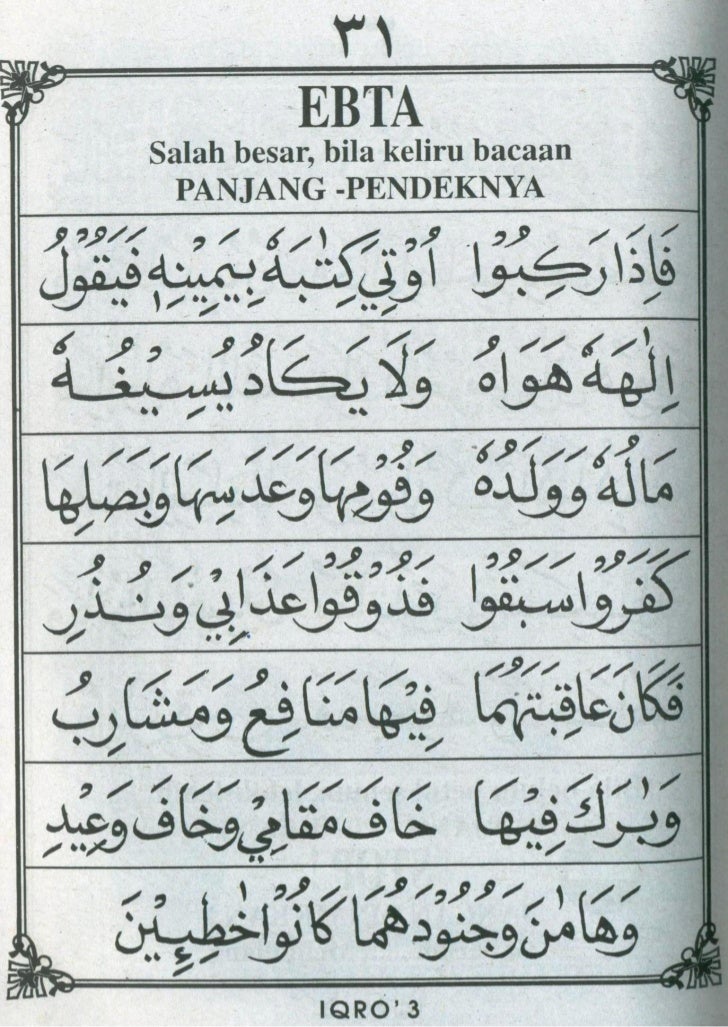 ٣١
EBTA
Salah besar, bila keliru bacaan
PANJANG -PENDEKNYA
فَاِذَا رَكِبُوْا اُوْتِيَ كِتٰبَهٗ بِيَمِيْنِهٖ فَيَقُوْلُ
اِلٰهَهٗ هَوَاهُ وَلَا يَكَادُ يُسِيْغُهٗ
مَالُهٗ وَوَلَدُهٗ وَفُوْمِهَا وَعَدَسِهَا وَبَصَلِهَا
كَفَرُوْا سَبَقُوْا فَذُوْقُوْا عَذَابِيْ وَنُذُرِ
فَكَانَ عَاقِبَتَهُمَا فِيْهَا مَنَافِعُ وَمَشَارِبُ
وَبٰرَكَ فِيْهَا خَافَ مَقَامِيْ وَخَافَ وَعِيْدِ
وَهَامٰنَ وَجُنُوْدَهُمَا كَانُوْا خٰطِـِٕيْنَ
IQRO' 3